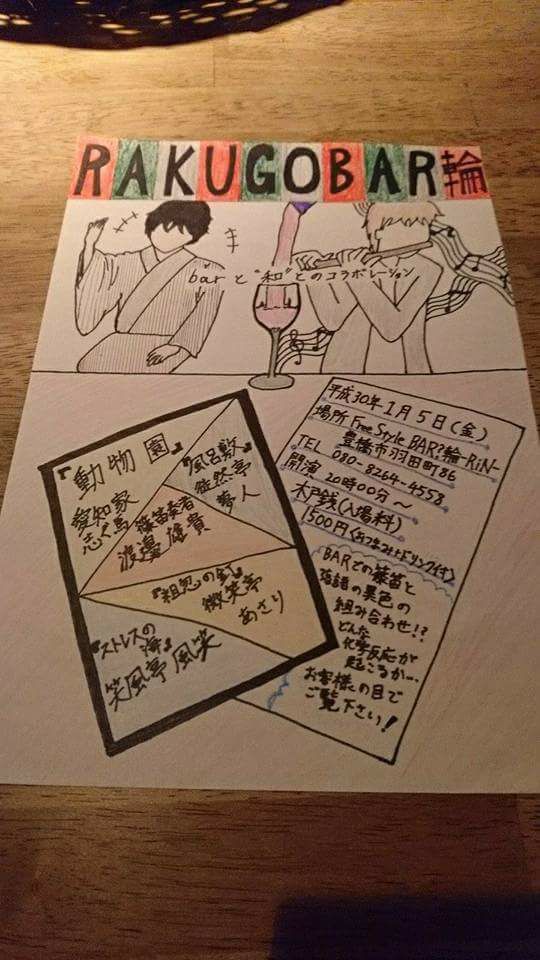 RAKUGOBAR輪
barと"和"とのコラボレーション
『動物園』
愛知家
志ぐ馬
『風呂敷』
徒然亭
夢人
篠笛奏者
渡邊雄貴
『粗忽の釘』
微笑亭
あさり
『ストレスの海』
笑風亭 風笑
平成30年1月5日(金)
場所 Free Style BAR?輪-RiN-
豊橋市羽田町86
TEL 080-8264-4558
開演 20時00分~
木戸銭(入場料)
1500円(おつまみ+ドリンク付)
BARでの篠笛と
落語の異色の
組み合わせ!?
どんな
化学反応が
起こるか…
お客様の目で
ご覧下さい!